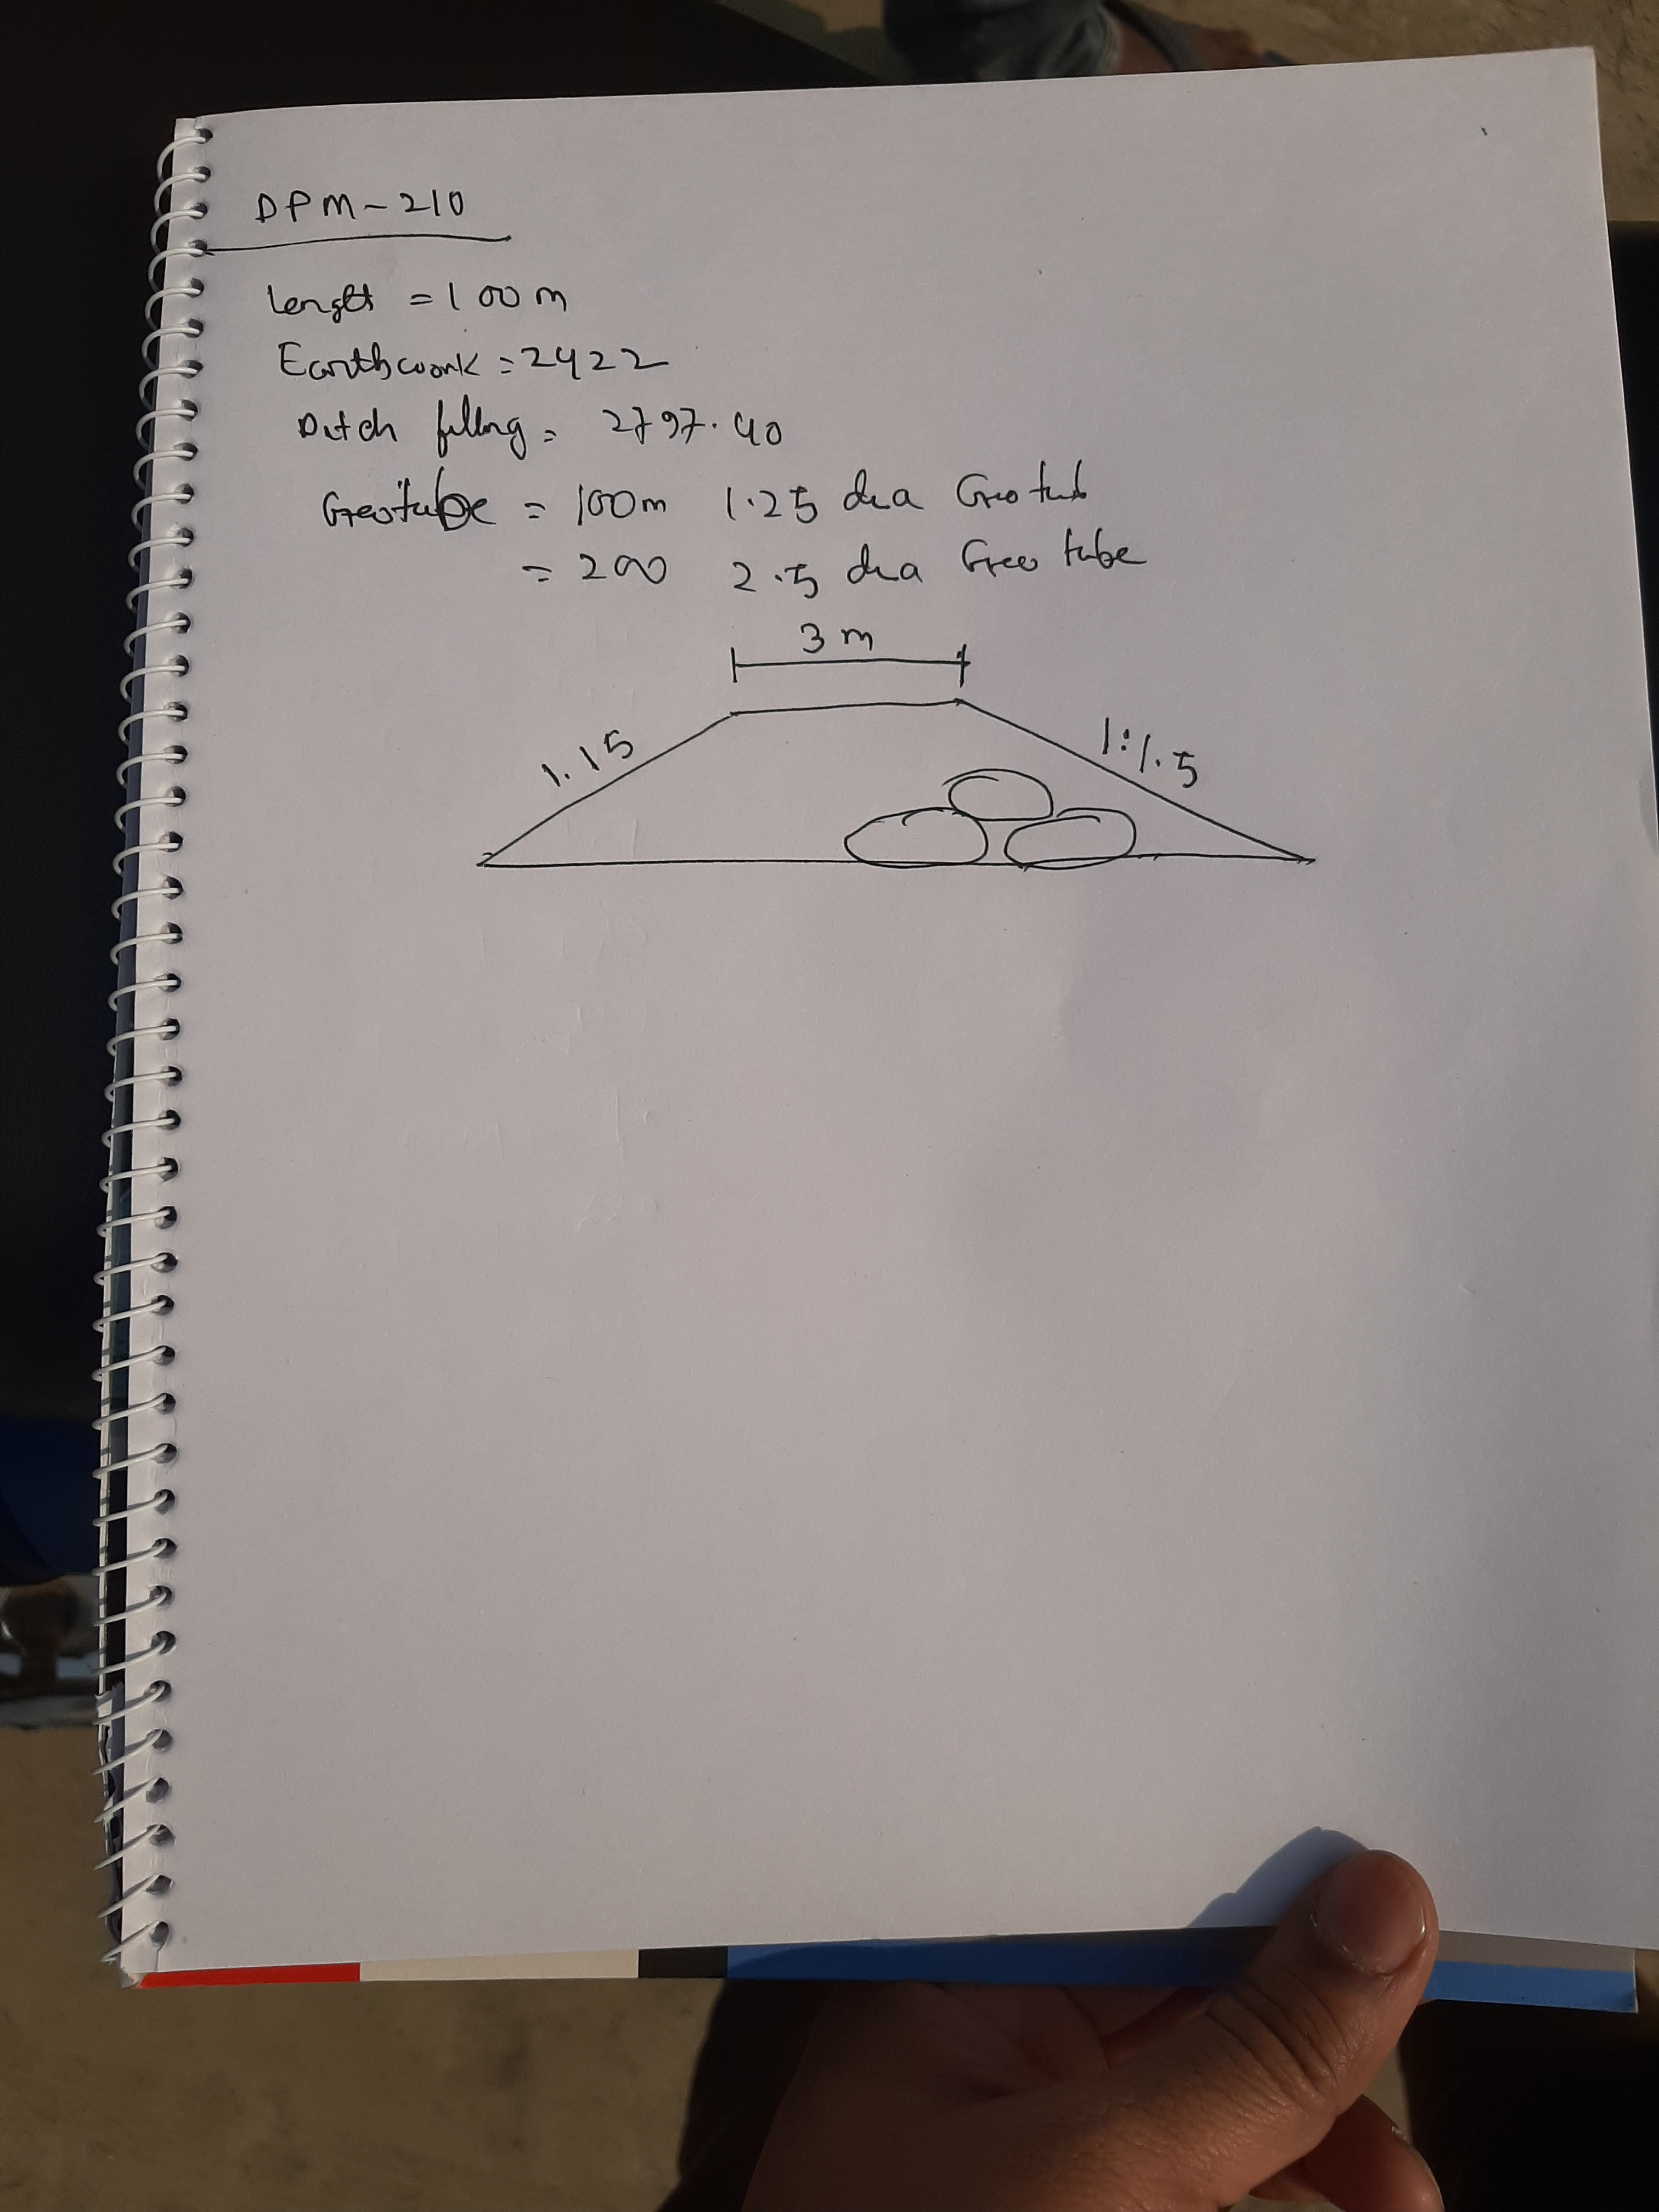 DPM-210
Length = 100m
Earthwork = 2422
Ditch filling = 2797.40
Geotube = 100m 1.25 dia Geotub
= 200 2.5 dia Geo tube
3 m
1.15
1:1.5